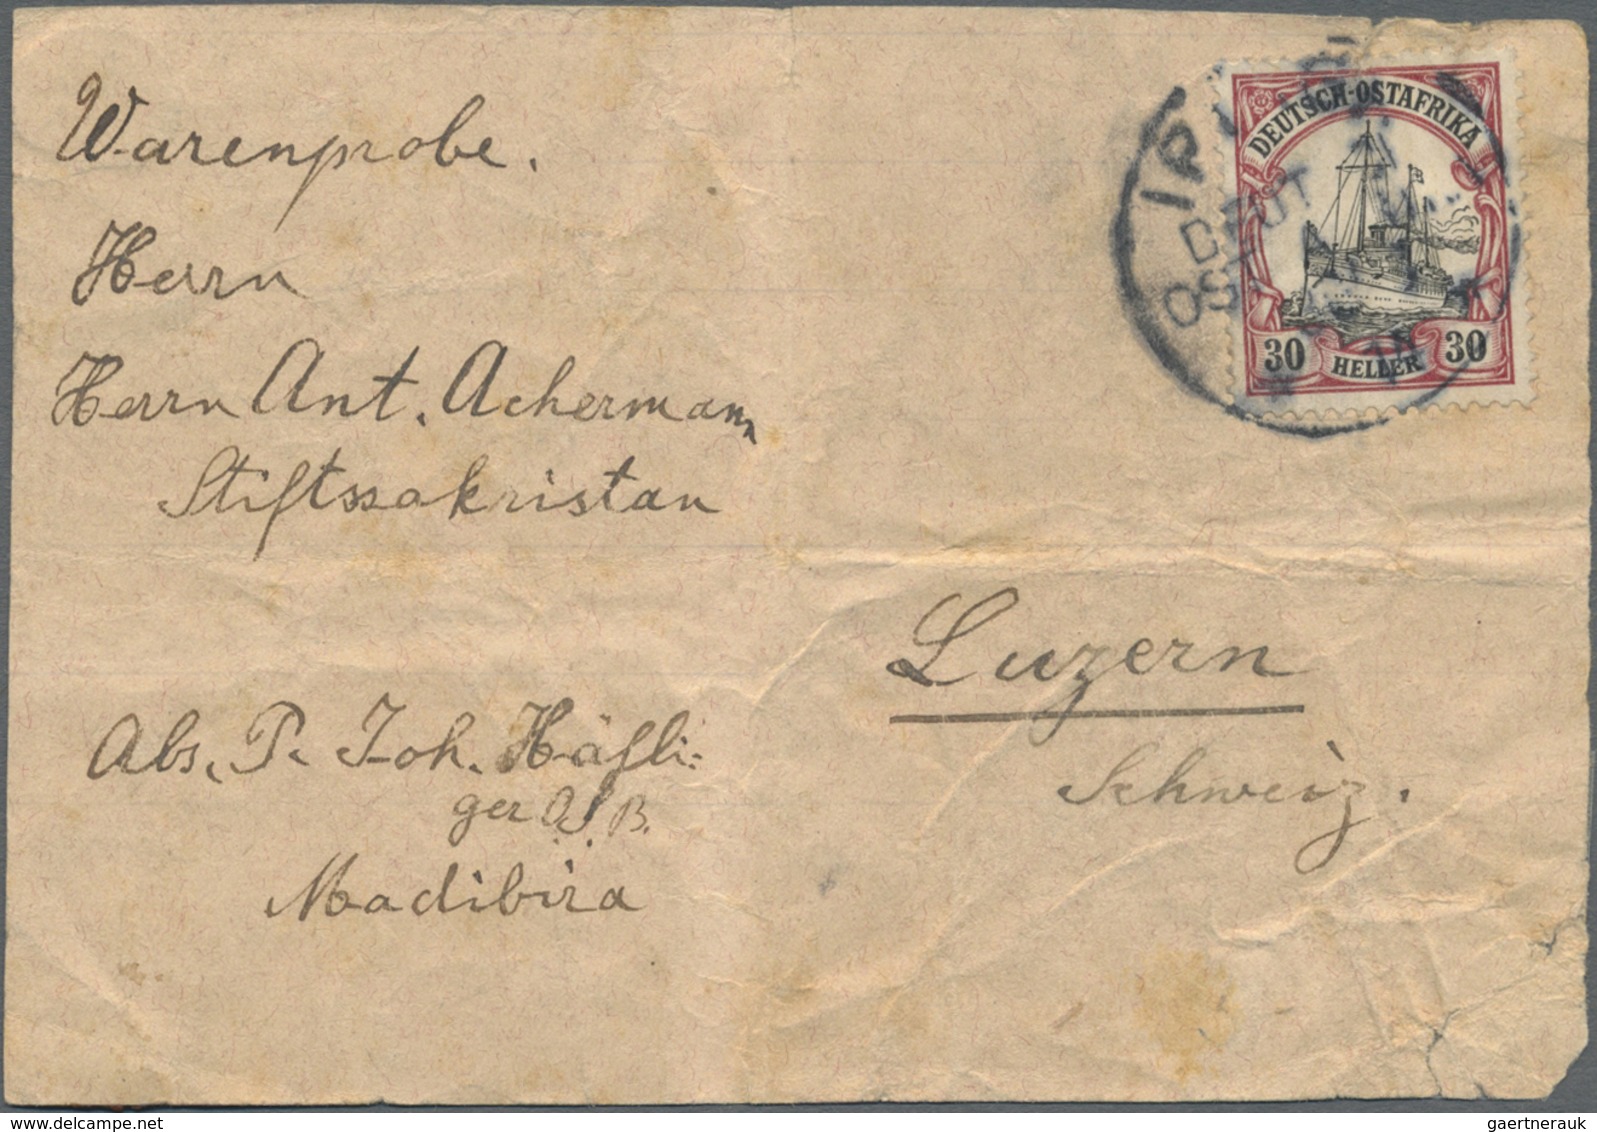 Warenprobe.
Herrn
Herrn Ant. Achermann
Stiftssakristan
Luzern
Schweiz.
Abs. P. Joh. Häfli-
ger O.S.B.
Madibira
DEUTSCH-OSTAFRIKA
30 HELLER 30
gaertnerauk@delcampe.net